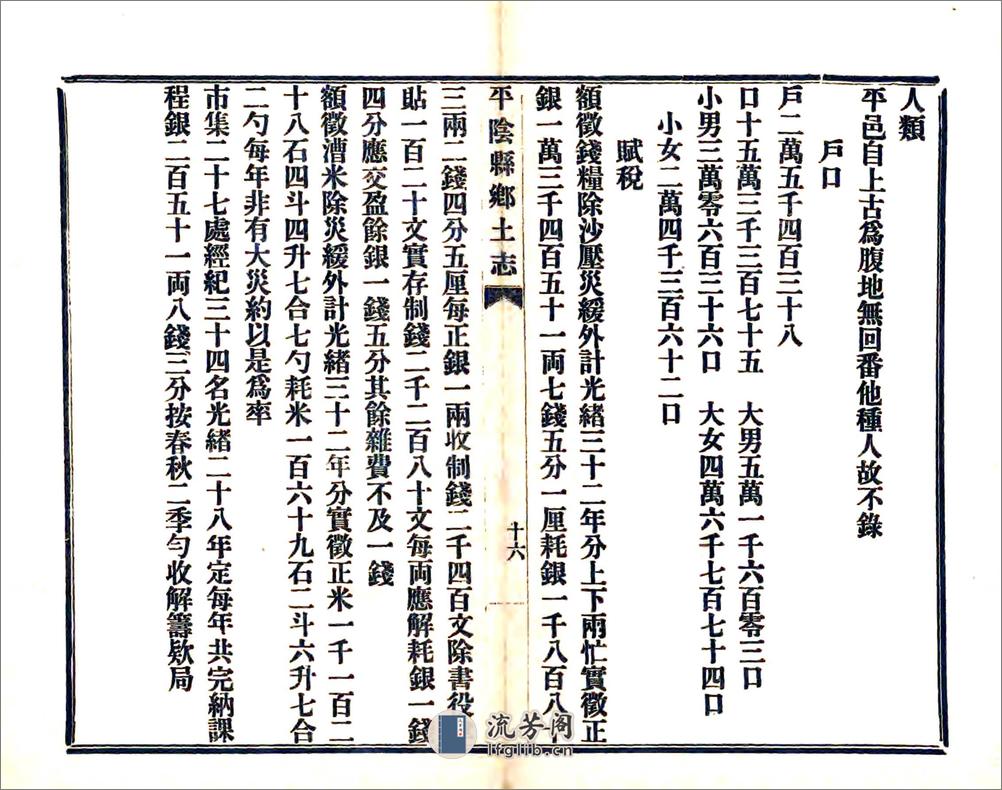 人類
平邑自上古爲腹地無回番他種人故不錄
戶口
戶二萬五千四百三十八
口十五萬三千三百七十五　大男五萬一千六百零三口
小男三萬零六百三十六口　大女四萬六千七百七十四口
小女二萬四千三百六十二口
賦稅
額徵錢糧除沙壓災緩外計光緒三十二年分上下兩忙實徵正
銀一萬三千四百五十一両七錢五分一厘耗銀一千八百八十
平陰縣鄉土志
十六
三兩二錢四分五厘每正銀一兩收制錢二千四百文除書役
貼一百二十文實存制錢二千二百八十文每両應解耗銀一錢
四分應交盈餘銀一錢五分其餘雜費不及一錢
額徵漕米除災緩外計光緒三十二年分實徵正米一千一百二
十八石四斗四升七合七勺耗米一百六十九石二斗六升七合
二勺每年非有大災約以是爲率
市集二十七處經紀三十四名光緒二十八年定每年共完納課
程銀二百五十一両八錢三分按春秋二季勻收解籌欵局
流芳阁
lfglib.cn